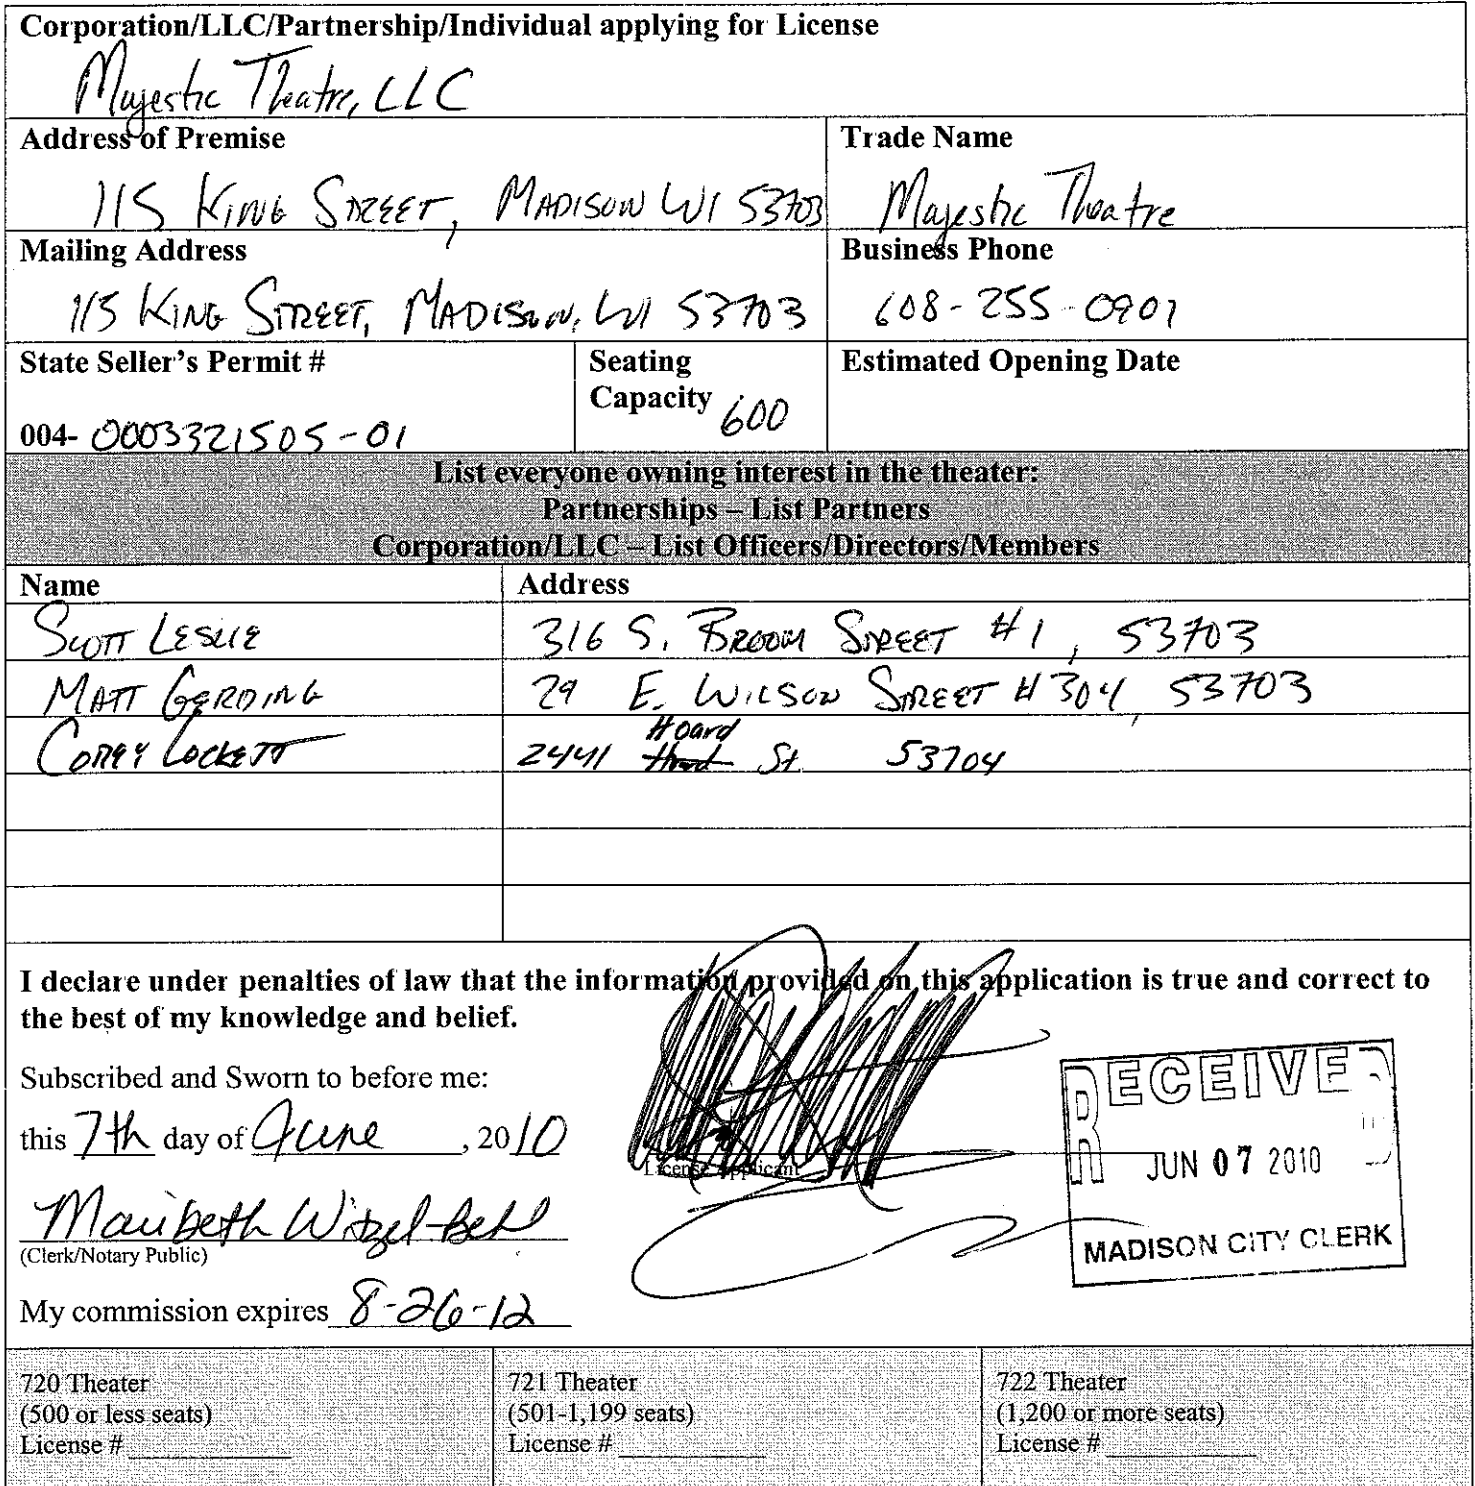 Corporation/LLC/Partnership/Individual applying for License
Majestic Theatre, LLC
Address of Premise
115 KING STREET, MADISON WI 53703
Trade Name
Majestic Theatre
Mailing Address
115 KING STREET, MADISON, WI 53703
Business Phone
608-255-0901
State Seller's Permit #
004- 0003321505-01
Seating
Capacity 600
Estimated Opening Date
List everyone owning interest in the theater:
Partnerships – List Partners
Corporation/LLC – List Officers/Directors/Members
Name Address
SCOTT LESLIE 316 S. BROOM STREET #1, 53703
MATT GERDING 29 E. WILSON STREET #304, 53703
Hoard
COREY LOCKETT 2441 St. 53704
I declare under penalties of law that the information provided on this application is true and correct to
the best of my knowledge and belief.
Subscribed and Sworn to before me:
this 7th day of June, 2010
License Applicant
Maribeth Witzel-Behl
(Clerk/Notary Public)
My commission expires 8-26-12
RECEIVED
JUN 07 2010
MADISON CITY CLERK
720 Theater
(500 or less seats)
License #
721 Theater
(501-1,199 seats)
License #
722 Theater
(1,200 or more seats)
License #